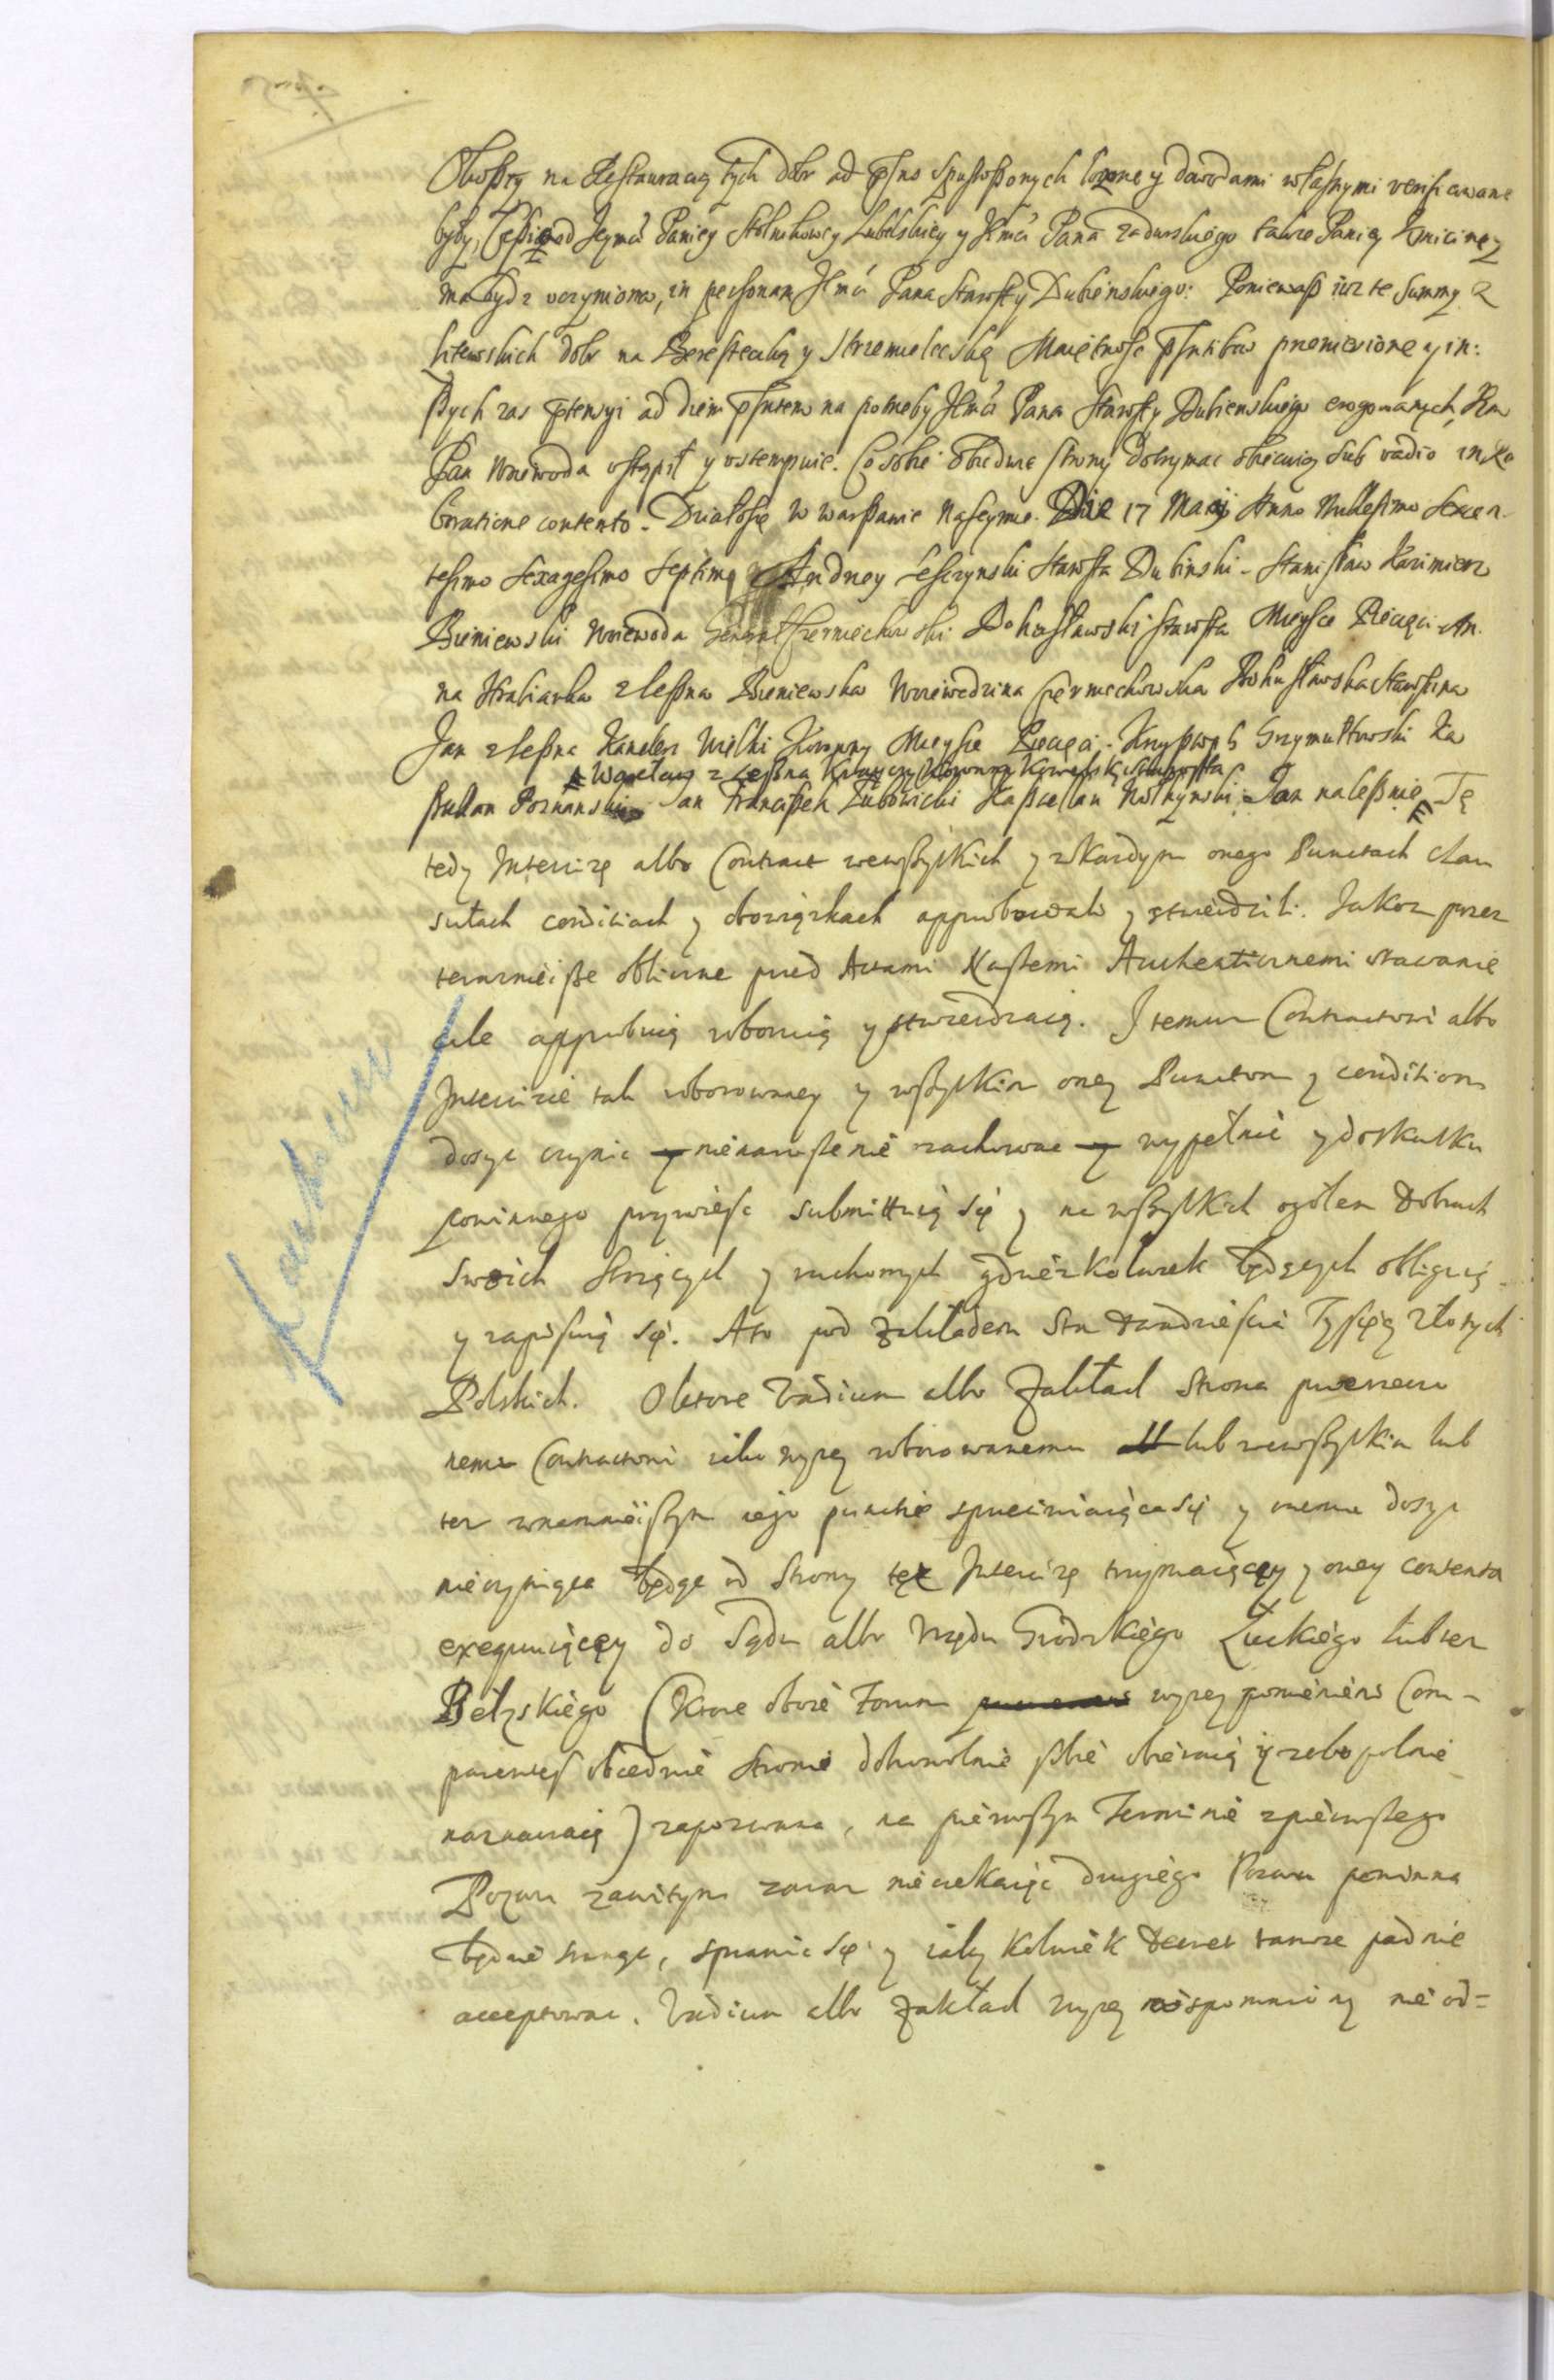 na Restauracią tych dobr ad łozone y dowodami własnymi verificowane
były, od Jeymci Paniey Stolnikowey Lubelskiey y Jʼmci Pana Zadurskiego także Paniey
ma bydz uczyniona, in personam Jʼmci Pana Starosty Dubienskiego: Poniewasz iuz te Summy z
litewskich dobr na Beresteczką y Strzemielecką Maiętnosc przeniesione y in:
szych zas ad diem na potrzeby Jʼmci Pana Starosty Dubienskiego erogowanych,
Pan Woiewoda ustąpił y ustempuie. Co sobie obiedwie strony dotrzymac obiecuią sub vadio in ro
boratione contento. Działosię w Warszawie naseymie. Die 17 Maij Anno Millesimo Sexcen
tesimo Sexagesimo Septimo Andrzey Lesczynski Starosta Dubinski - Stanisław Kazimierz
Bieniewski Woiewoda General Czerniechowski Bohusławski Starosta Mieysce Pieczęci - An
na Hrabianka z Leszna Bieniewska Woiewodzina Czerniechowska Bohusławska Starościna
Jan z Leszna Kanclerz Wielki Koronny Mieysce Pieczęci. Krzysztoph Grzymułtowski Ka
Wacław z Leszna Krayczy Koronny Kowelski Starosta
sztellan Poznanski Jan Franciszek Łubowicki Kasztellan Wołhynski Jan na Lesznie Tę
tedy Intercizę albo Contract wewszytkich y wkazdym onego Punctach clau
sułach conditiach y obowiązkach approbowali y stwierdzili. Jakosz przez
teraznieisze obliczne przed Actami Naszemi Authenticznemi stawanie
cale approbuią roboruią y stwierdzaią. Y temu Contractowi albo
Intercizie tak roborowaney y wszytkim oney Punctom y conditiom
dosyc czynic nienaruszenie zachowac wypełnic y doskutku
powinnego przywiesc submittuią się y na wszytkich ogołem Dobrach
Swoich lezących y ruchomych gdzieżkolwiek będących obliguią
y zapisuią się. A to pod Zakładem Sta Dwudziestu Tysięcy Złotych
Polskich. Oktore Vadium albo Zakład Strona przeciw
nemu Contractowi iako wyzey roborowanemu lub wewszytkim lub
tez wnamnieiszym iego punctie sprzeciwiaiąca się y onemu dosyc
nieczyniąca będąc od Strony tęż Intercizę trzymaiącey y oney contenta
exequuiącey do Sądu albo Urzędu Grodzkiego Łuckiego lubtez
Bełzskiego (Ktore oboie Forum wyzey pomienieni Com-
parentes obiedwie Stronie dobrowolnie sobie obieraią y zobopolnie
naznaczaią) zapozwana, na pierwszym Terminie zpierwszego
Pozwu zawitym zaraz nieczekaiąc drugiego Pozwu powinna
będzie stanąc, sprawic się y iaky Kolwiek Decret tamze padnie
acceptowac. Vadium albo Zakład wyzey wspomniony nieod=
Kontrakt